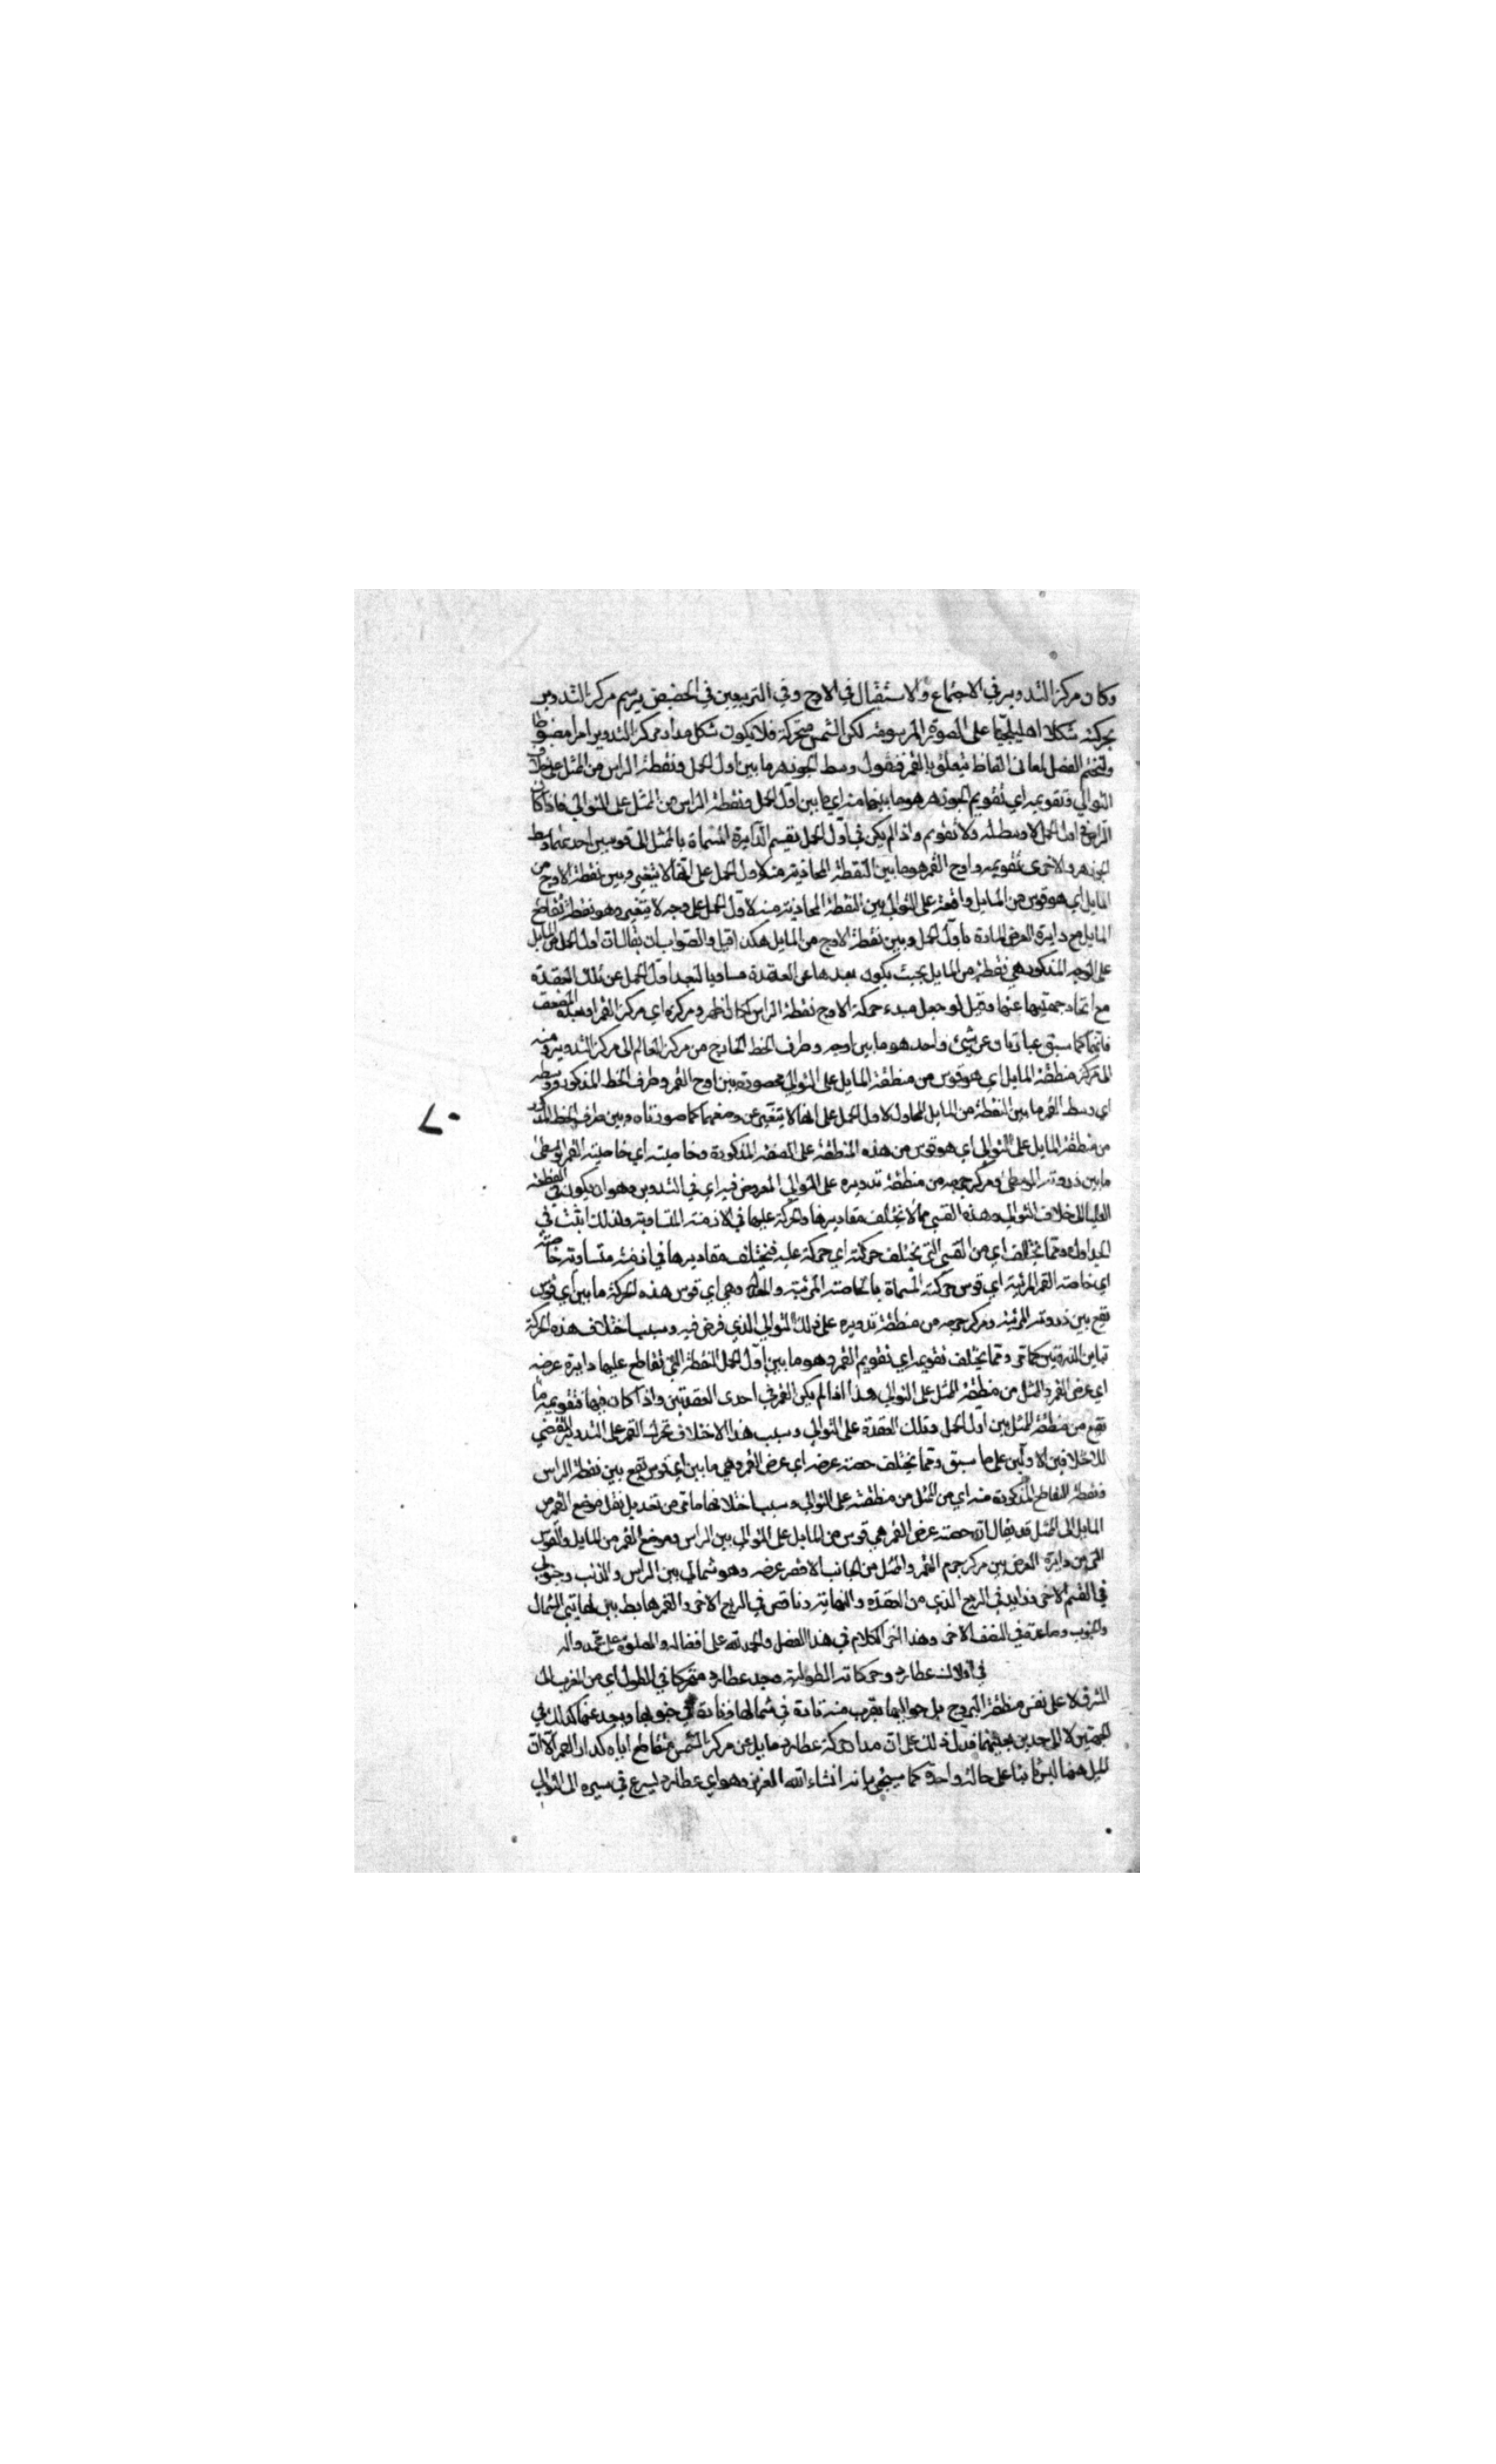 وكان مركز التدوير في الاجتماع والاستقبال في الاوج وفي التربيعين في الحضيض يرسم مركز التدوير
بحركته شكلا اهليلجيا على الصورة المرسومة لكن الشمس متحركة فلا يكون شكل مدار مركز التدوير امرا مضبوطا
ولنختم الفصل لمعاني الفاظ يتعلق بالقمر فنقول وسط الجوزهر ما بين اول الحمل ونقطة الراس من الممثل على خلاف
التوالي وتقويمه اي تقويم الجوزهر هو ما بينهما منه اي ما بين اول الحمل ونقطة الراس من الممثل على التوالي فاذا كان
الراس في اول الحمل لا وسط له ولا تقويم واذا لم يكن في اول الحمل يقسم الدايرة المسماة بالممثل الى قوسين احدهما وسط
الجوزهر والاخرى تقويمه واوج القمر هو ما بين النقطة المحاذية منه لاول الحمل على انها لا يتغير وبين نقطة الاوج من
المايل اي هو قوس من المايل واقعة على التوالي بين النقطة المحاذية منه لاول الحمل على وجه لا يتغير وهو نقطة تقاطع
المايل مع دايرة العرض المارة باول الحمل وبين نقطة الاوج من المايل هكذا قيل والصواب ان يقال ان اول الحمل من المايل
على الوجه المذكور هي نقطة من المايل بحيث يكون بعدها عن العقدة مساويا لبعد اول الحمل عن تلك العقدة
مع اتحاد جهتيهما عنها وقيل لو جعل مبدء حركة الاوج نقطة الراس لكان اظهر ومركزه اي مركز القمر او بعده المضعف
فانهما كما سبق عبارتان عن شيئ واحد هو ما بين اوجه وطرف الخط الخارج من مركز العالم الى مركز التدوير ومنه
المركز منطقة المايل اي هو قوس من منطقة المايل على التوالي محصورة بين اوج القمر وطرف الخط المذكور ووسطه
اي وسط القمر ما بين النقطة من المايل المحاذية لاول الحمل على انها لا يتغير عن وضعها كما صورناه وبين طرف الخط المذكور
من منطقة المايل على التوالي اي هو قوس من هذه المنطقة على الصفة المذكورة وخاصيته اي خاصية القمر الوسطى
ما بين ذروته الوسطى ومركز جرمه من منطقة تدويره على التوالي المفروض فيه اي في التدوير وهو ان يكون في القطعة
العليا الى خلاف التوالي وهذه القسي مما لا يختلف مقاديرها والحركة عليها في الازمنة المتساوية ولذلك اثبت في
الجداول ومما يختلف اي من القسي التي يختلف حركته اي حركة عليه فيختلف مقاديرها في ازمنة متساوية خاصته
اي خاصة القمر المرئية اي قوس حركته المسماة بالخاصة المرئية والمعدلة وهي اي قوس هذه الحركة ما بين اي قوس
تقع بين ذروته المرئية ومركز جرمه من منطقة تدويره على ذلك التوالي الذي فرض فيه وسبب اختلاف هذه الحركة
تباين الذروتين كما مر ومما يختلف تقويمه اي تقويم القمر وهو ما بين اول الحمل النقطة التي تقاطع عليها دايرة عرضه
اي عرض القمر والممثل من منطقة الممثل على التوالي هذا اذا لم يكن القمر في احدى العقدتين واذا كان فيها فتقويمه ما
تقع من منطقة الممثل بين اول الحمل وتلك العقدة على التوالي وسبب هذا الاختلاف تحرك القمر على التدوير المقتضي
للاختلافين الاولين على ما سبق ومما يختلف حصة عرضه اي عرض القمر وهي ما بين اي قوس تقع بين نقطة الراس
ونقطة التقاطع المذكورة منه اي من الممثل من منطقته على التوالي وسبب اختلافها ما مر من تعديل نقل موضع القمر من
المايل الى الممثل قد يقال ان حصة عرض القمر هي قوس من المايل على التوالي بين الراس وموضع القمر من المايل والقوس
التي من دايرة العرض بين مركز جرم القمر والممثل من الجانب الاقصر عرضه وهو شمالي بين الراس والذنب وجنوبي
في القسم الاخر وزايد في الربع الذي من العقدة والنهاية وناقص في الربع الاخر والقمر هابط بين نهايتي الشمال
والجنوب وصاعد في النصف الاخر وهذا اخر الكلام في هذا الفصل والحمد لله على افضاله والصلوة على محمد واله
في افلاك عطارد وحركاته الطولية وجد عطارد متحركا في الطول اي من المغرب الى
المشرق لا على نفس منطقة البروج بل حواليها يقرب منه تارة في شمالها وتارة في جنوبها ويبعد عنها كذلك في
الجهتين لا الى حد بعينهما فدل ذلك على ان مدار حركة عطارد مايل عن مركز الشمس مقاطع اياه كمدار القمر الا ان
الميل ههنا ليس ثابتا على حالة واحدة كما سيجئ بيانه انشاء الله العزيز وهو اي عطارد يسرع في سيره الى التوالي